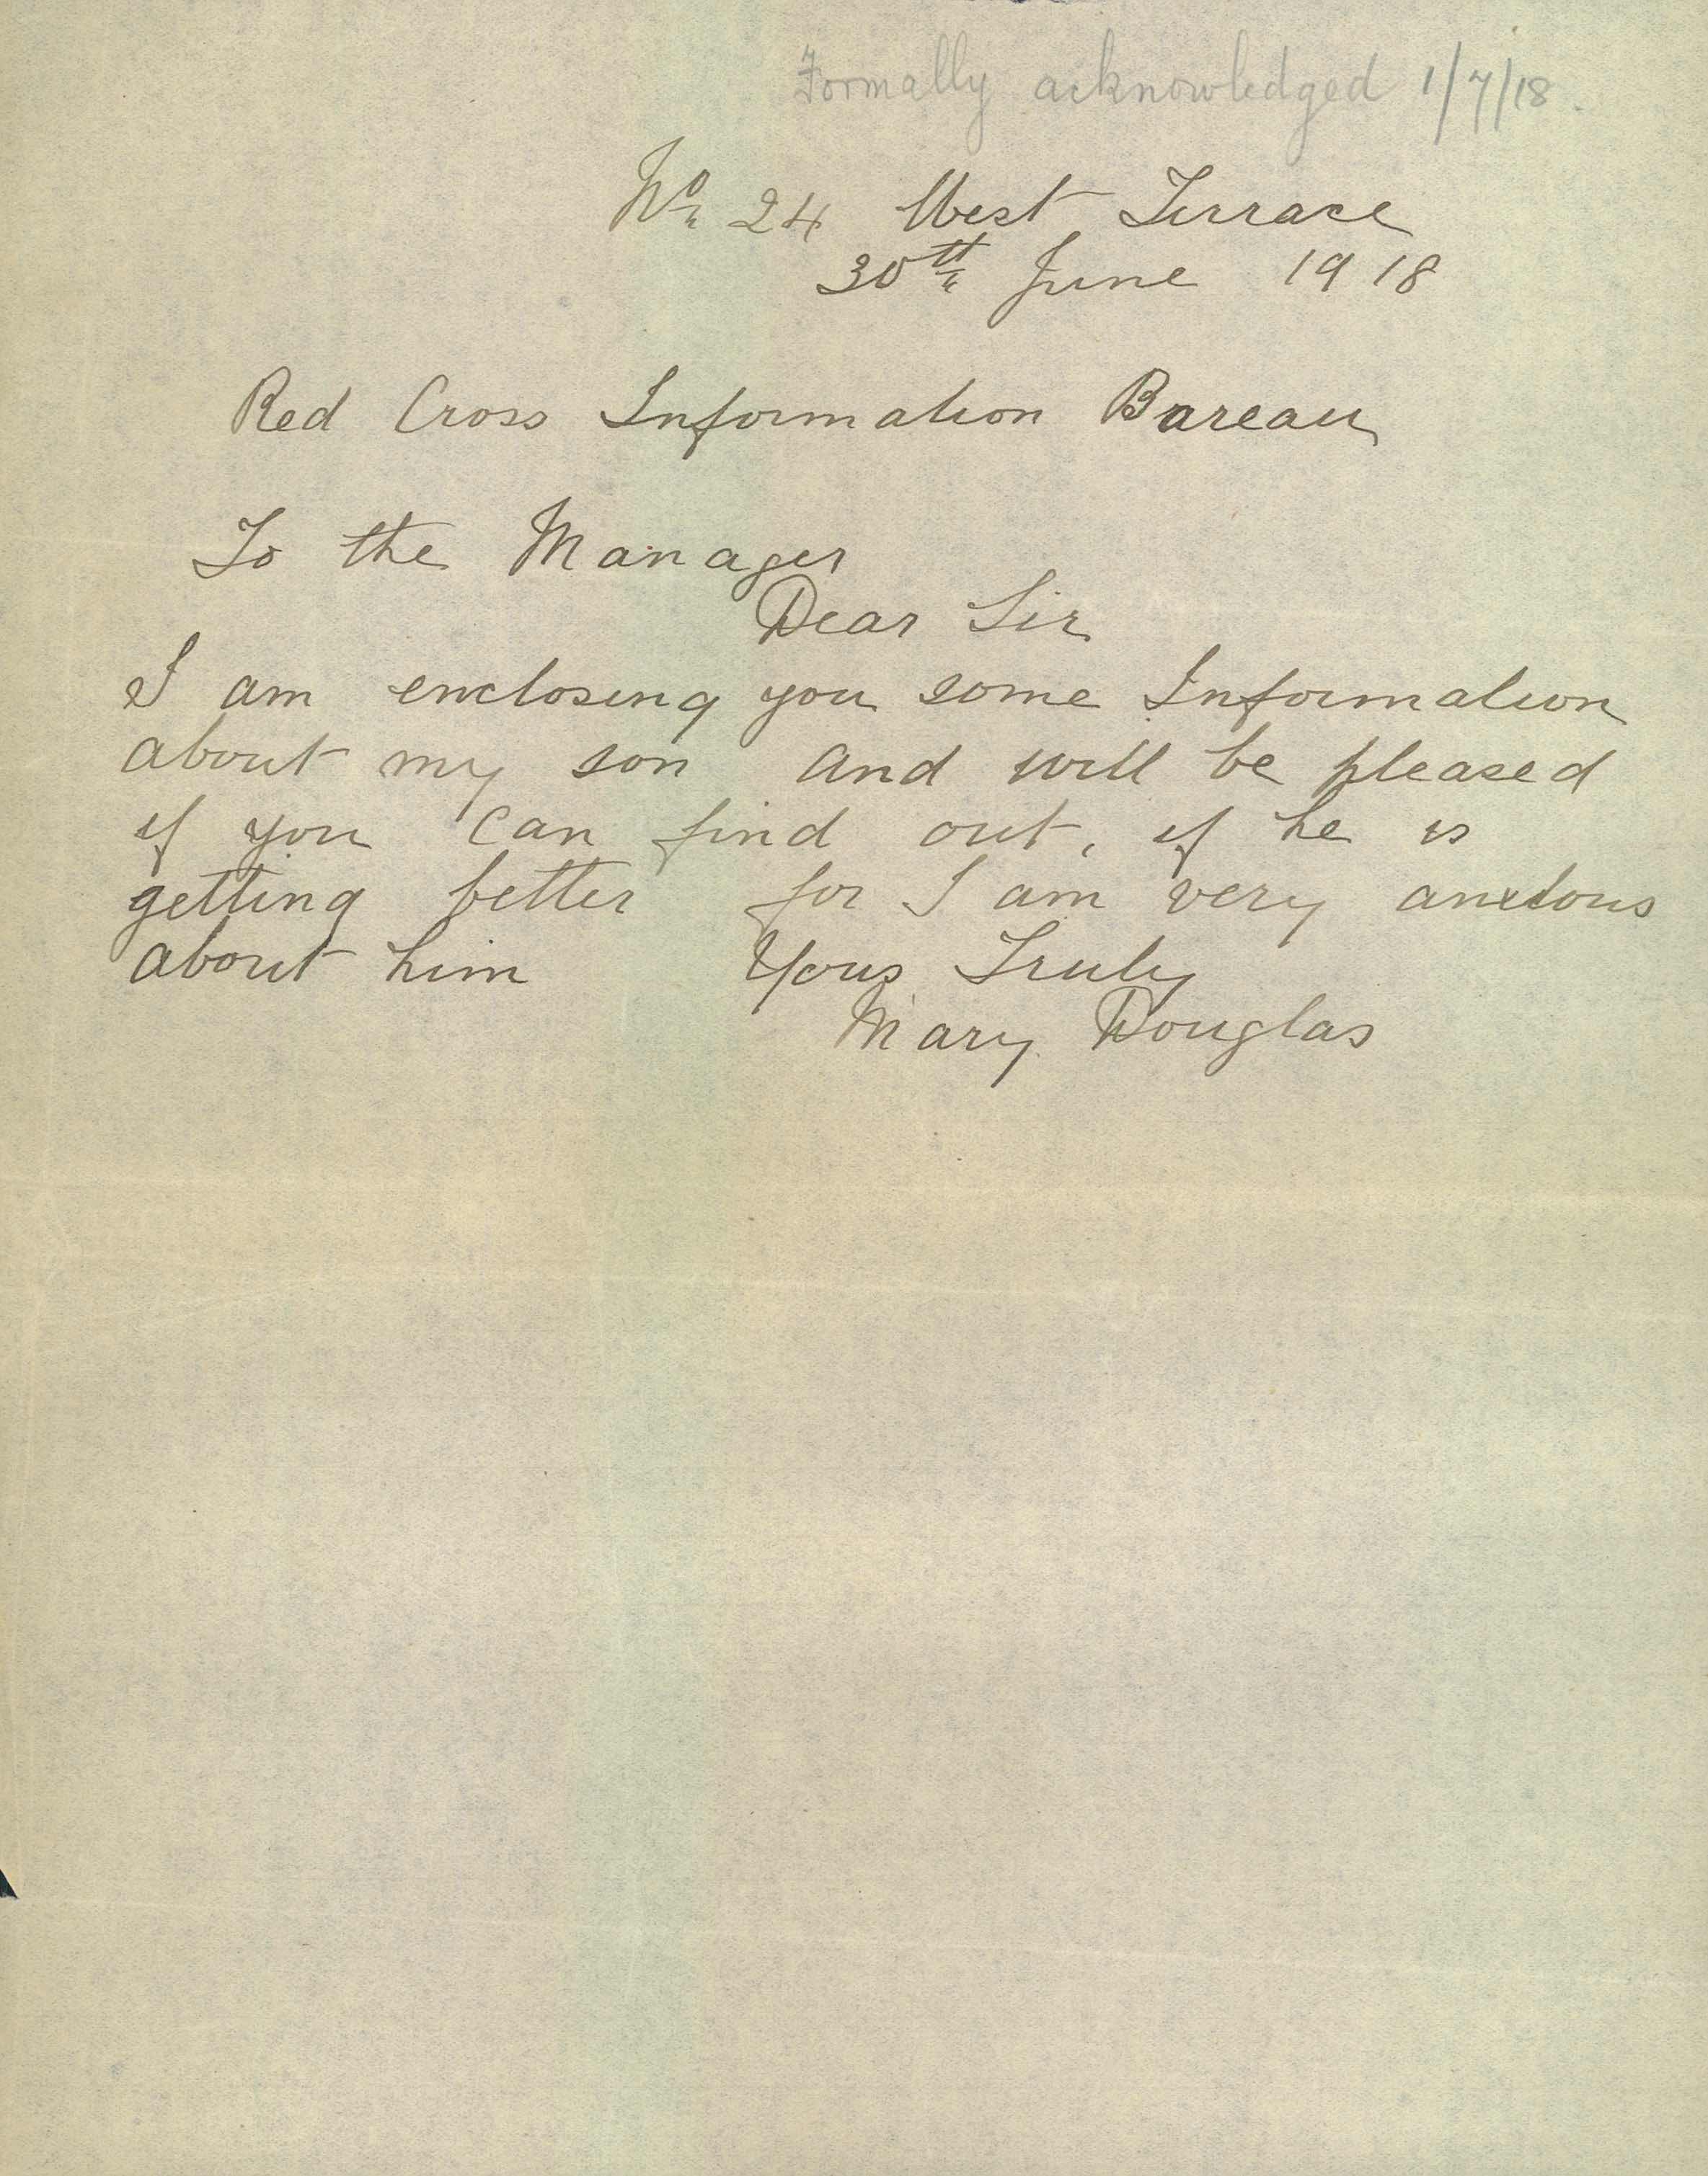 Formally acknowledged 1/7/18.
No. 24 West Terrace
30th June 1918
Red Cross Information Bareau
To the Manager
Dear Sir
I am enclosing you some Information
about my son and will be pleased
if you can find out, if he is
getting better for I am very anxious
about him Yous Truly
Mary Douglas